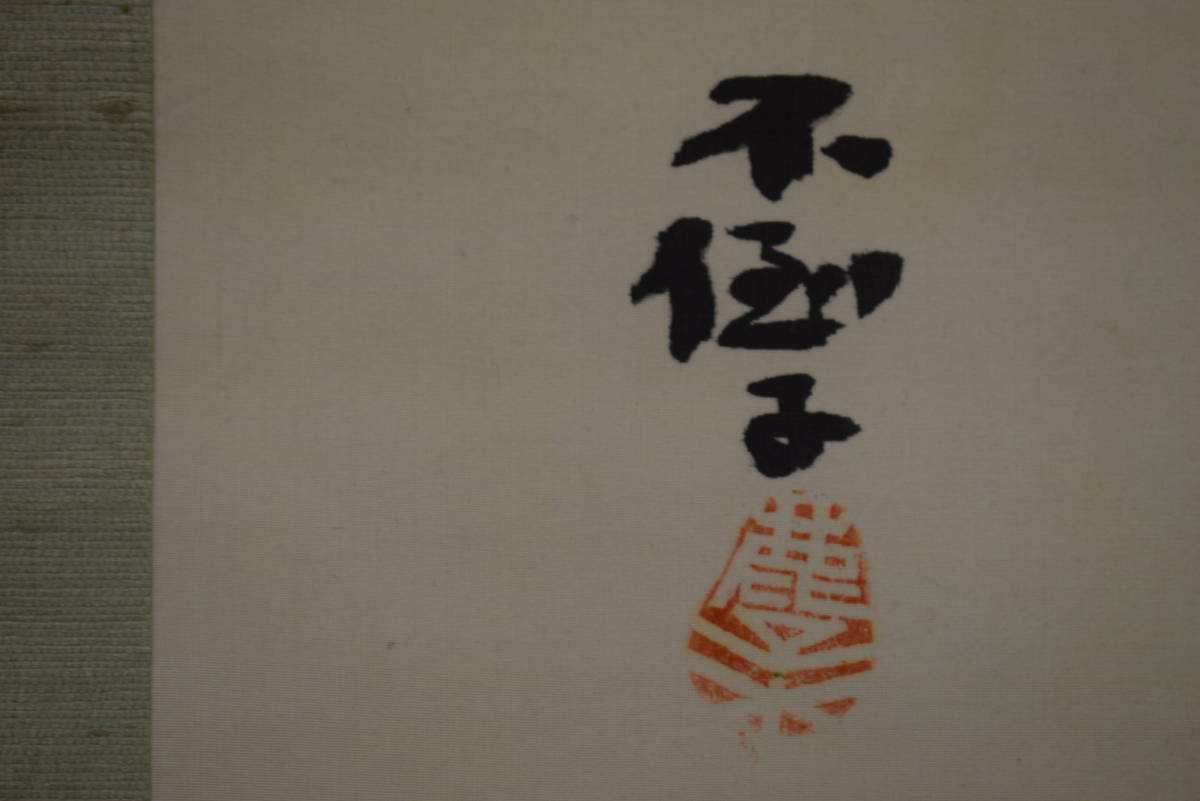 不倒子